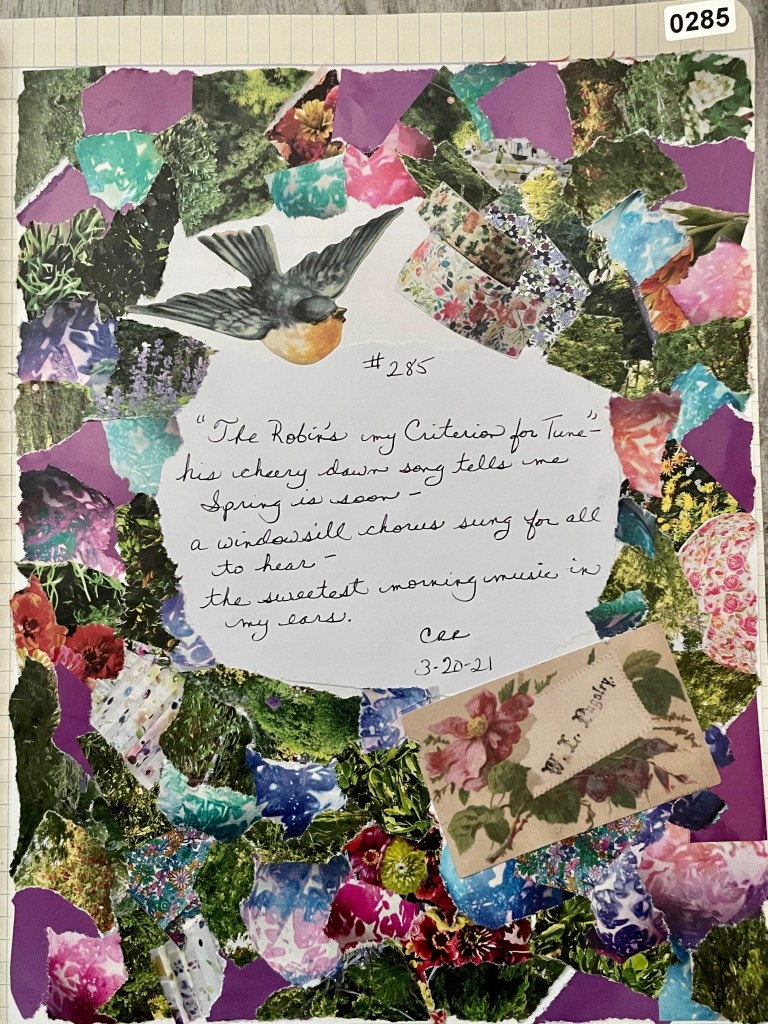 0285
#285
"The Robin's my Criterion for Tune"–
his cheery dawn song tells me
Spring is soon –
a windowsill chorus sung for all
to hear –
the sweetest morning music in
my ears.
CRR
3-20-21
W. L. Pugsley.